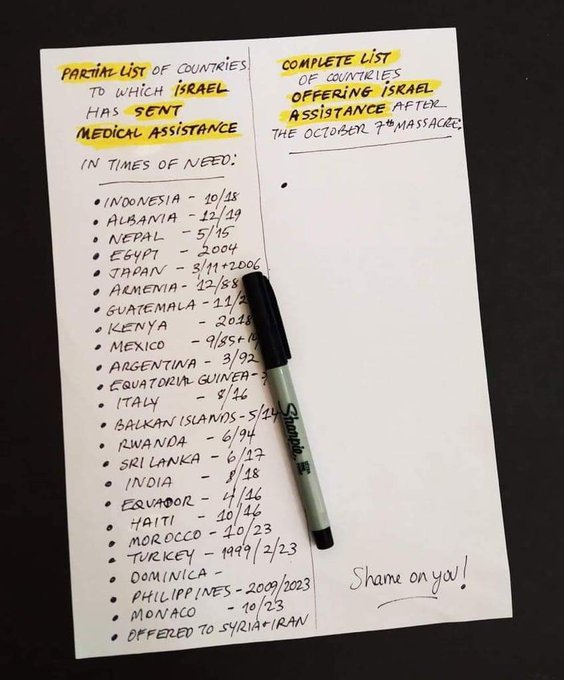 PARTIAL LIST OF COUNTRIES
TO WHICH ISRAEL
HAS SENT
MEDICAL ASSISTANCE
IN TIMES OF NEED:
• INDONESIA - 10/18
• ALBANIA - 12/19
• NEPAL - 5/15
• EGYPT - 2004
• JAPAN - 3/11+2006
• ARMENIA - 12/88
• GUATEMALA - 11/2
• KENYA - 2018
• MEXICO - 9/85+
• ARGENTINA - 3/92
• EQUATORIAL GUINEA -
• ITALY - 8/16
• BALKAN ISLANDS - 5/14
• RWANDA - 6/94
• SRI LANKA - 6/17
• INDIA - 8/18
• EQUADOR - 4/16
• HAITI - 10/16
• MOROCCO - 10/23
• TURKEY - 1999/2/23
• DOMINICA -
• PHILIPPINES - 2009/2023
• MONACO - 10/23
• OFFERED TO SYRIA+IRAN
COMPLETE LIST
OF COUNTRIES
OFFERING ISRAEL
ASSISTANCE AFTER
THE OCTOBER 7th MASSACRE:
•
Shame on you!
Sharpie